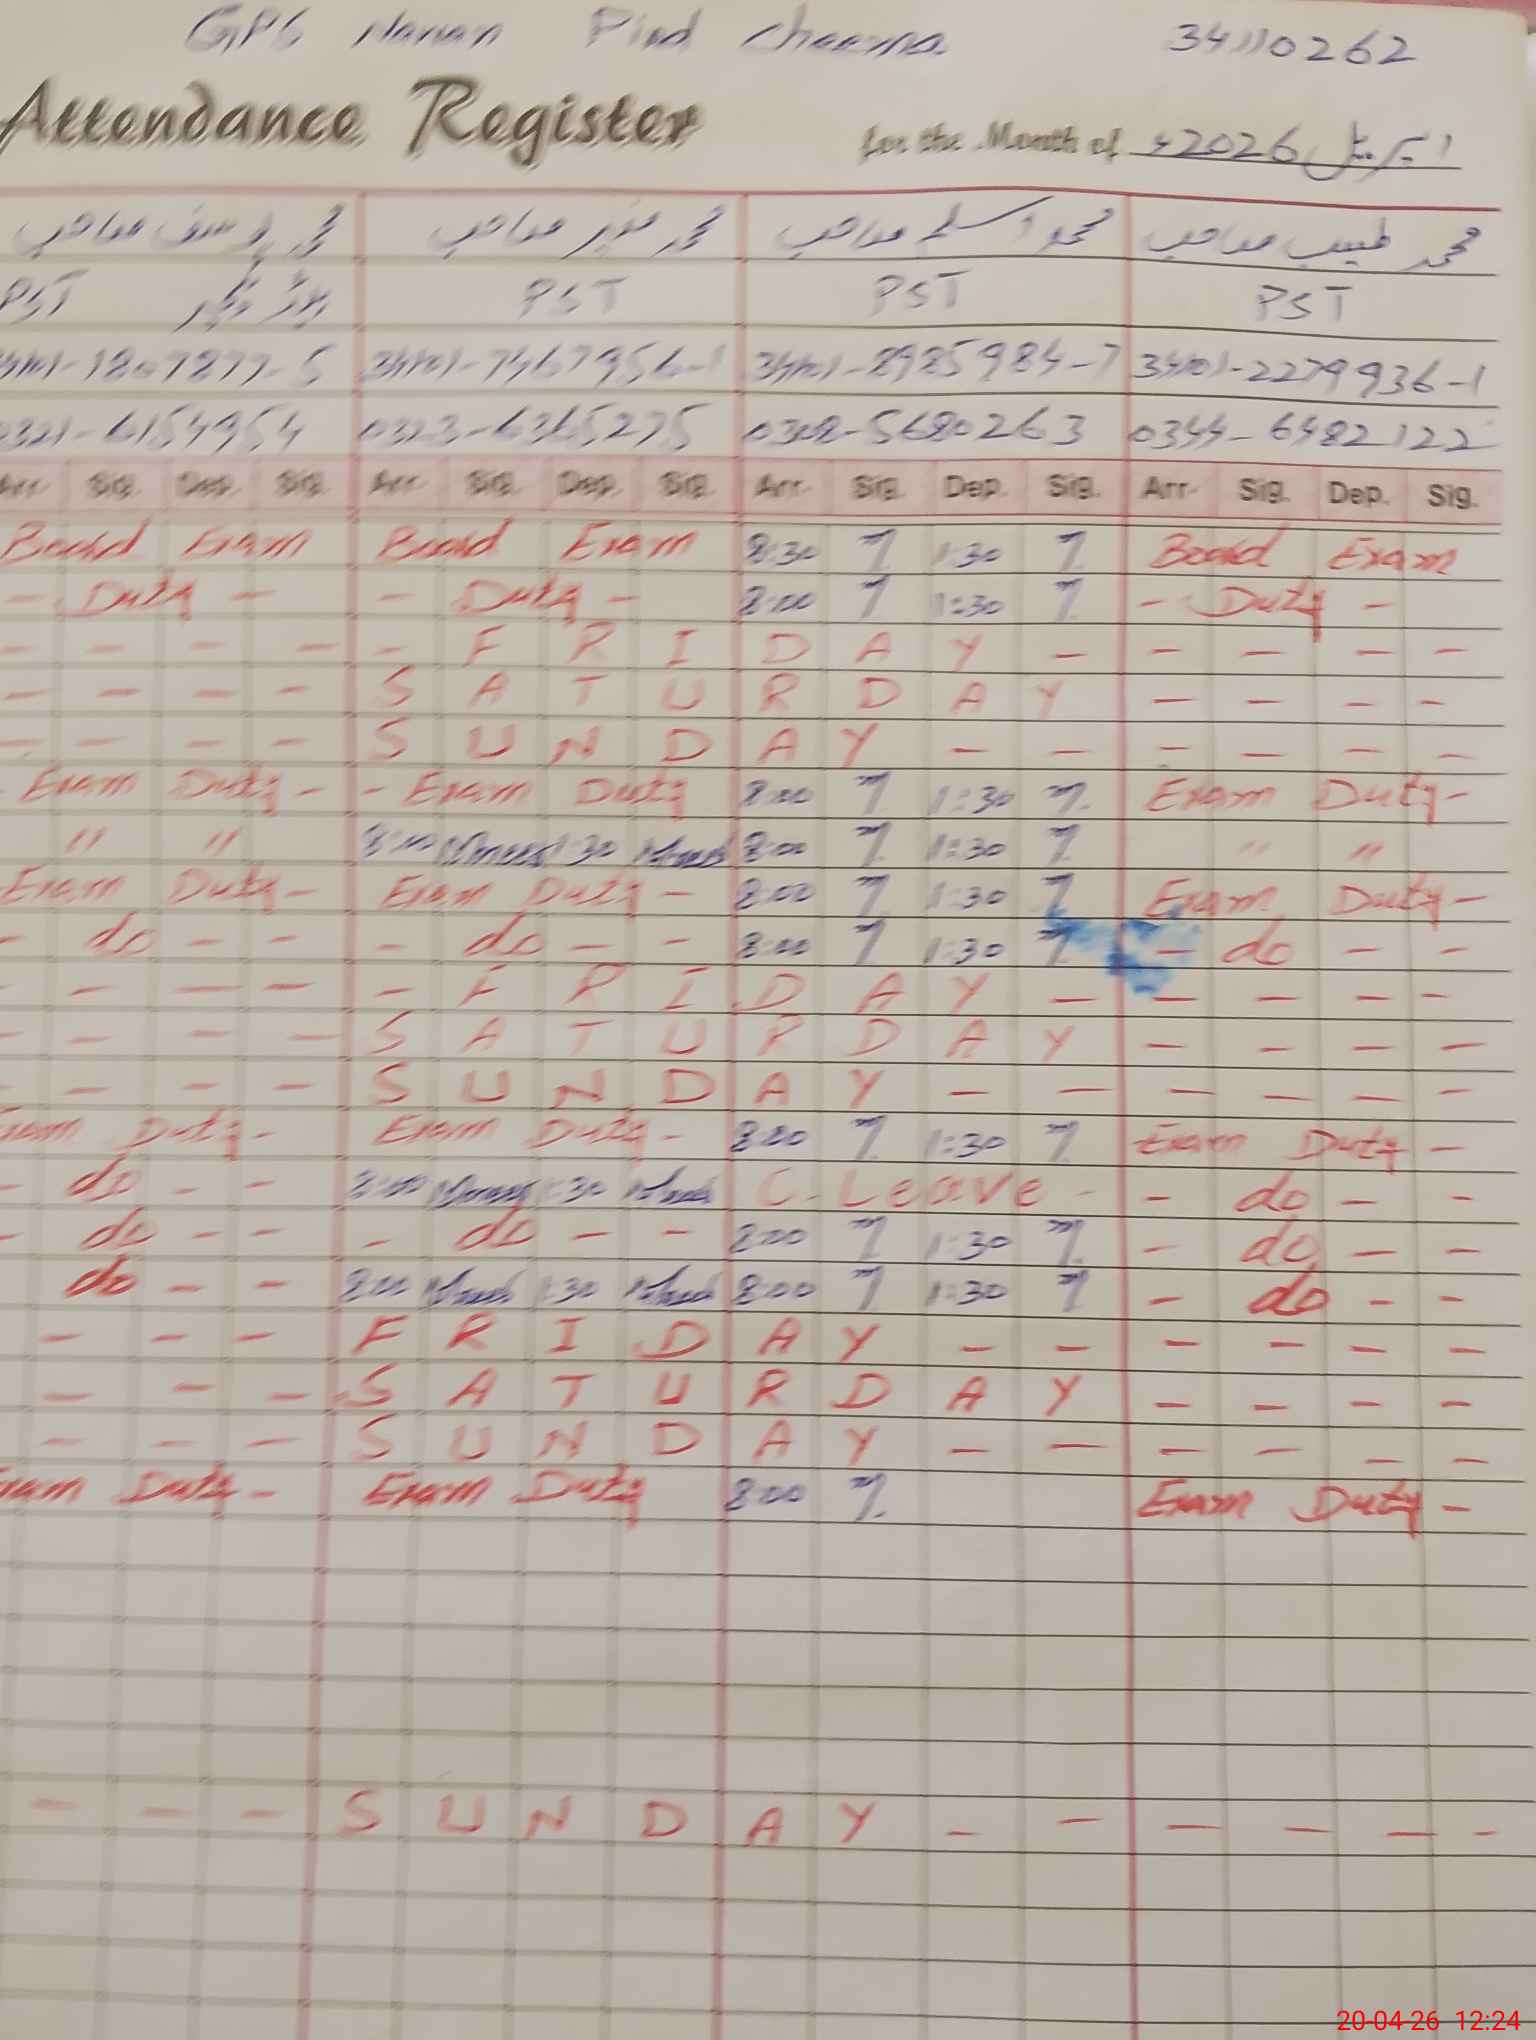 GPS Narian Pind Cheema 34110262
Attendance Register for the Month of اپریل 2026ء
محمد یوسف صاحب محمد منیر صاحب محمد اسلم صاحب محمد طیب صاحب
PST ہیڈ ٹیچر PST PST PST
34101-1807877-5 34101-7467956-1 34101-8985984-7 34101-2279936-1
0321-6154954 0323-6365275 0308-5680263 0344-6482122
Arr. Sig. Dep. Sig. Arr. Sig. Dep. Sig. Arr. Sig. Dep. Sig. Arr. Sig. Dep. Sig.
Board Exam Board Exam 8:30 1:30 Board Exam
- Duty - - Duty - 8:00 1:30 - Duty -
- - - - - F R I D A Y - - - - -
- - - - S A T U R D A Y - - - -
- - - - S U N D A Y - - - - - -
- Exam Duty - - Exam Duty 8:00 1:30 Exam Duty -
" " 8:00 1:30 8:00 1:30 " "
Exam Duty - Exam Duty - 8:00 1:30 Exam Duty -
- do - - - do - - 8:00 1:30 - do - -
- - - - - F R I D A Y - - - - -
- - - - S A T U R D A Y - - - -
- - - - S U N D A Y - - - - - -
Exam Duty - Exam Duty - 8:00 1:30 Exam Duty -
- do - - 8:00 1:30 C. Leave - - do - -
- do - - - do - - 8:00 1:30 - do - -
do - - 8:00 1:30 8:00 1:30 - do - -
- - - F R I D A Y - - - - - -
- - - S A T U R D A Y - - - -
- - - S U N D A Y - - - - - -
Exam Duty - Exam Duty 8:00 Exam Duty -
- - - S U N D A Y - - - - - -
20-04-26 12:24